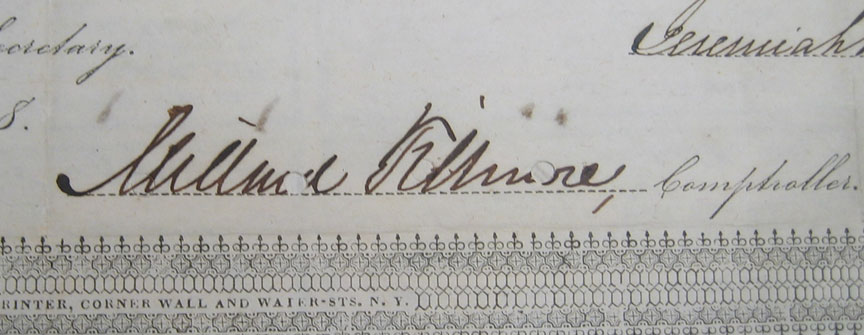 Secretary.
Jeremiah
8.
Millard Fillmore, Comptroller.
RINTER, CORNER WALL AND WATER-STS. N. Y.